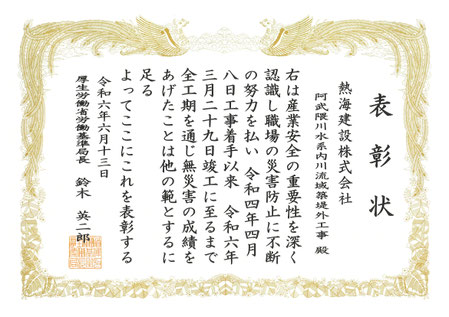 表彰状
熱海建設株式会社
阿武隈川水系内川流域築堤外工事 殿
右は産業安全の重要性を深く
認識し職場の災害防止に不断
の努力を払い 令和四年四月
八日工事着手以来 令和六年
三月二十九日竣工に至るまで
全工期を通じ無災害の成績を
あげたことは他の範とするに
足る
よってここにこれを表彰する
令和六年六月十三日
厚生労働省労働基準局長 鈴木 英二郎